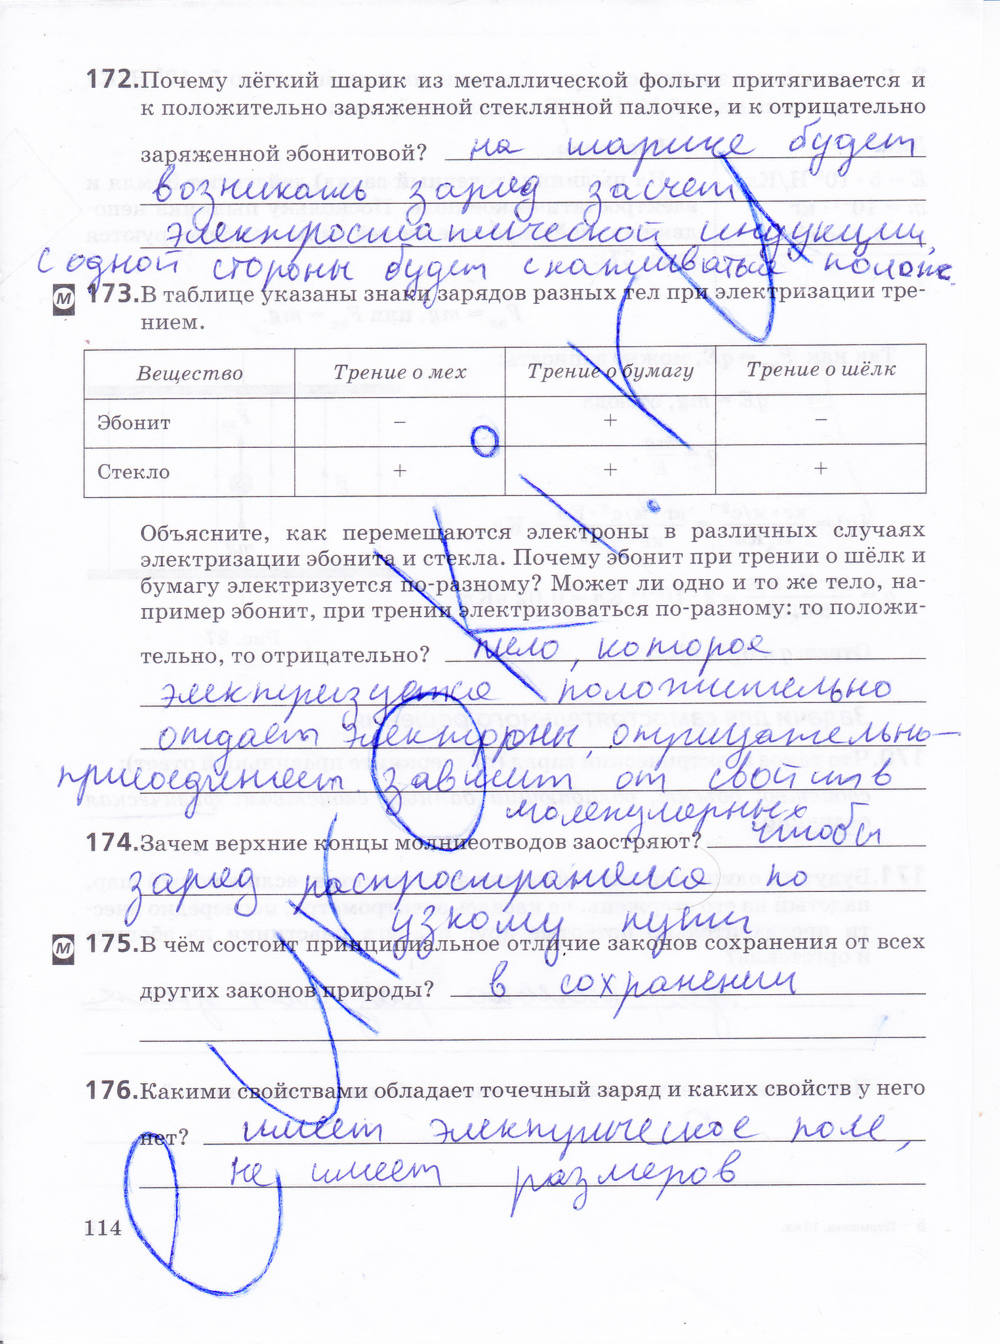 172. Почему лёгкий шарик из металлической фольги притягивается и
к положительно заряженной стеклянной палочке, и к отрицательно
заряженной эбонитовой? на шарике будет
возникать заряд засчет
электростатической индукции,
с одной стороны будет скапливаться полож.
М 173. В таблице указаны знаки зарядов разных тел при электризации тре-
нием.
Вещество Трение о мех Трение о бумагу Трение о шёлк
Эбонит – + –
Стекло + + +
Объясните, как перемещаются электроны в различных случаях
электризации эбонита и стекла. Почему эбонит при трении о шёлк и
бумагу электризуется по-разному? Может ли одно и то же тело, на-
пример эбонит, при трении электризоваться по-разному: то положи-
тельно, то отрицательно? тело, которое
электризуется положительно
отдаёт электроны, отрицательно—
присоединяет. зависит от свойств
молекулярных
174. Зачем верхние концы молниеотводов заостряют? чтобы
заряд распространялся по
узкому пути
М 175. В чём состоит принципиальное отличие законов сохранения от всех
других законов природы? в сохранении
176. Какими свойствами обладает точечный заряд и каких свойств у него
нет? имеет электрическое поле,
не имеет размеров
114